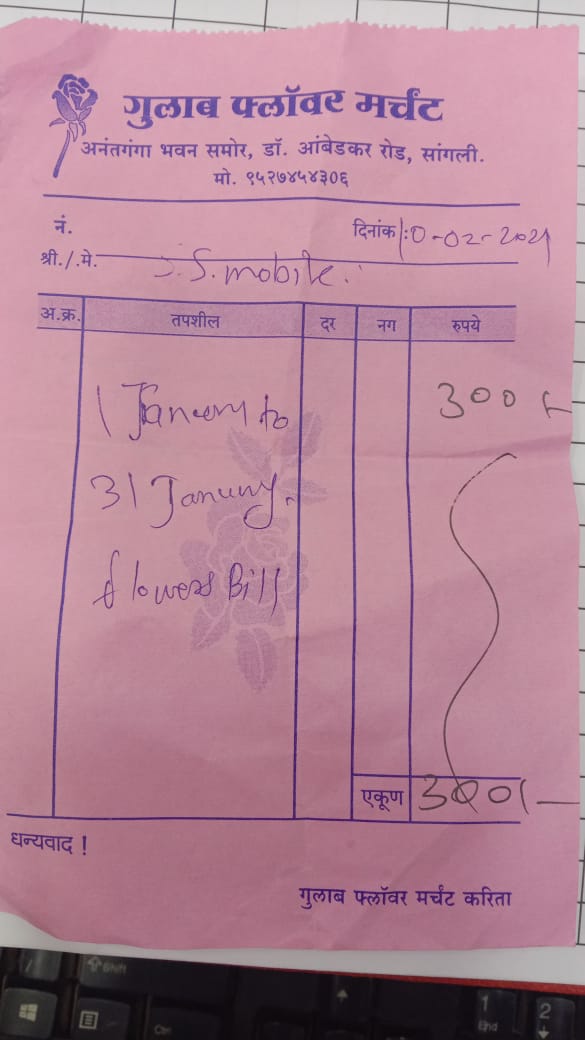 गुलाब फ्लॉवर मर्चंट
अनंतगंगा भवन समोर, डॉ. आंबेडकर रोड, सांगली.
मो. ९५२७४५४३०६
नं.
दिनांक : 10-02-2021
श्री./.मे. J.S. mobile.
अ.क्र. तपशील दर नग रुपये
1 January to 300/-
31 January.
flowers Bill
एकूण 300/-
धन्यवाद !
गुलाब फ्लॉवर मर्चंट करिता
Shift
Ctrl
1 2
End